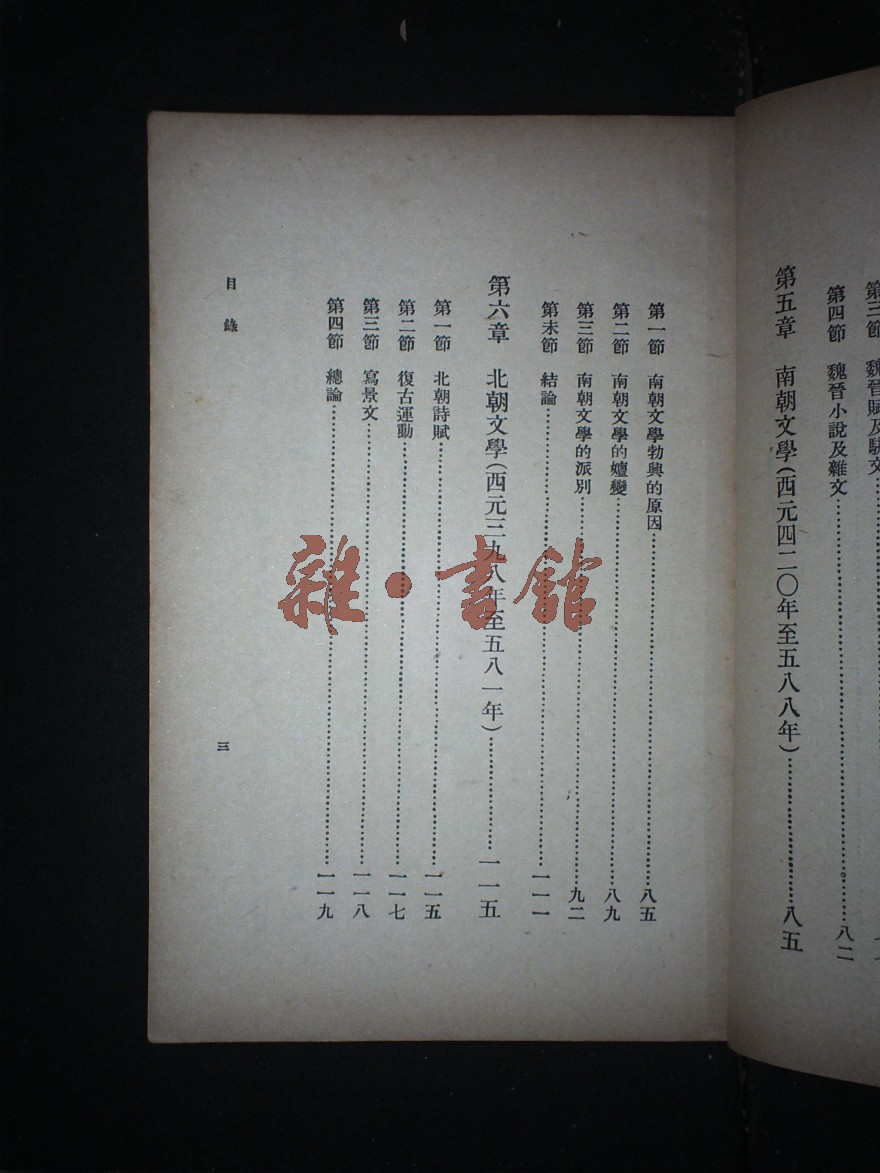 第三節 魏晉賦及駢文
第四節 魏晉小說及雜文……八二
第五章 南朝文學(西元四二〇年至五八八年)……八五
第一節 南朝文學勃興的原因……八五
第二節 南朝文學的嬗變……八九
第三節 南朝文學的派別……九二
第末節 結論……一一一
第六章 北朝文學(西元三九八年至五八一年)……一一五
第一節 北朝詩賦……一一五
第二節 復古運動……一一七
第三節 寫景文……一一八
第四節 總論……一一九
目錄
三
雜·書館